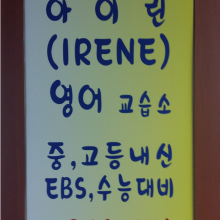 아이린
(IRENE)
영어 교습소
중,고등내신
EBS,수능대비